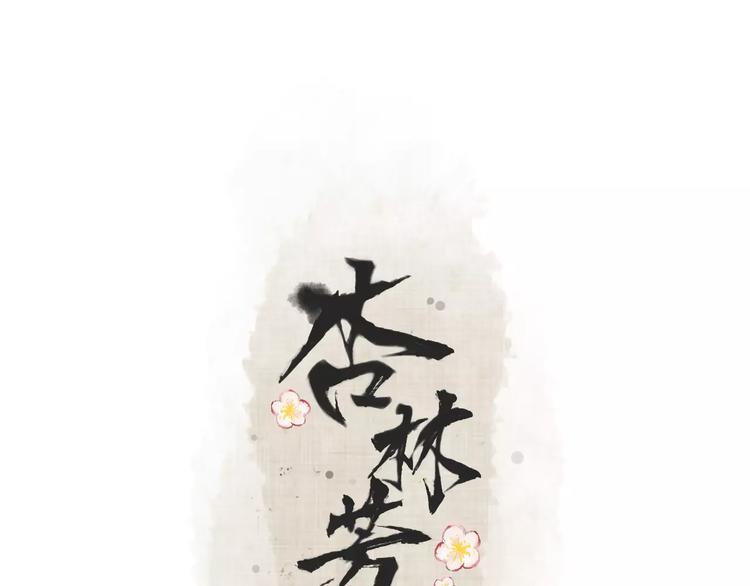 杏林芳